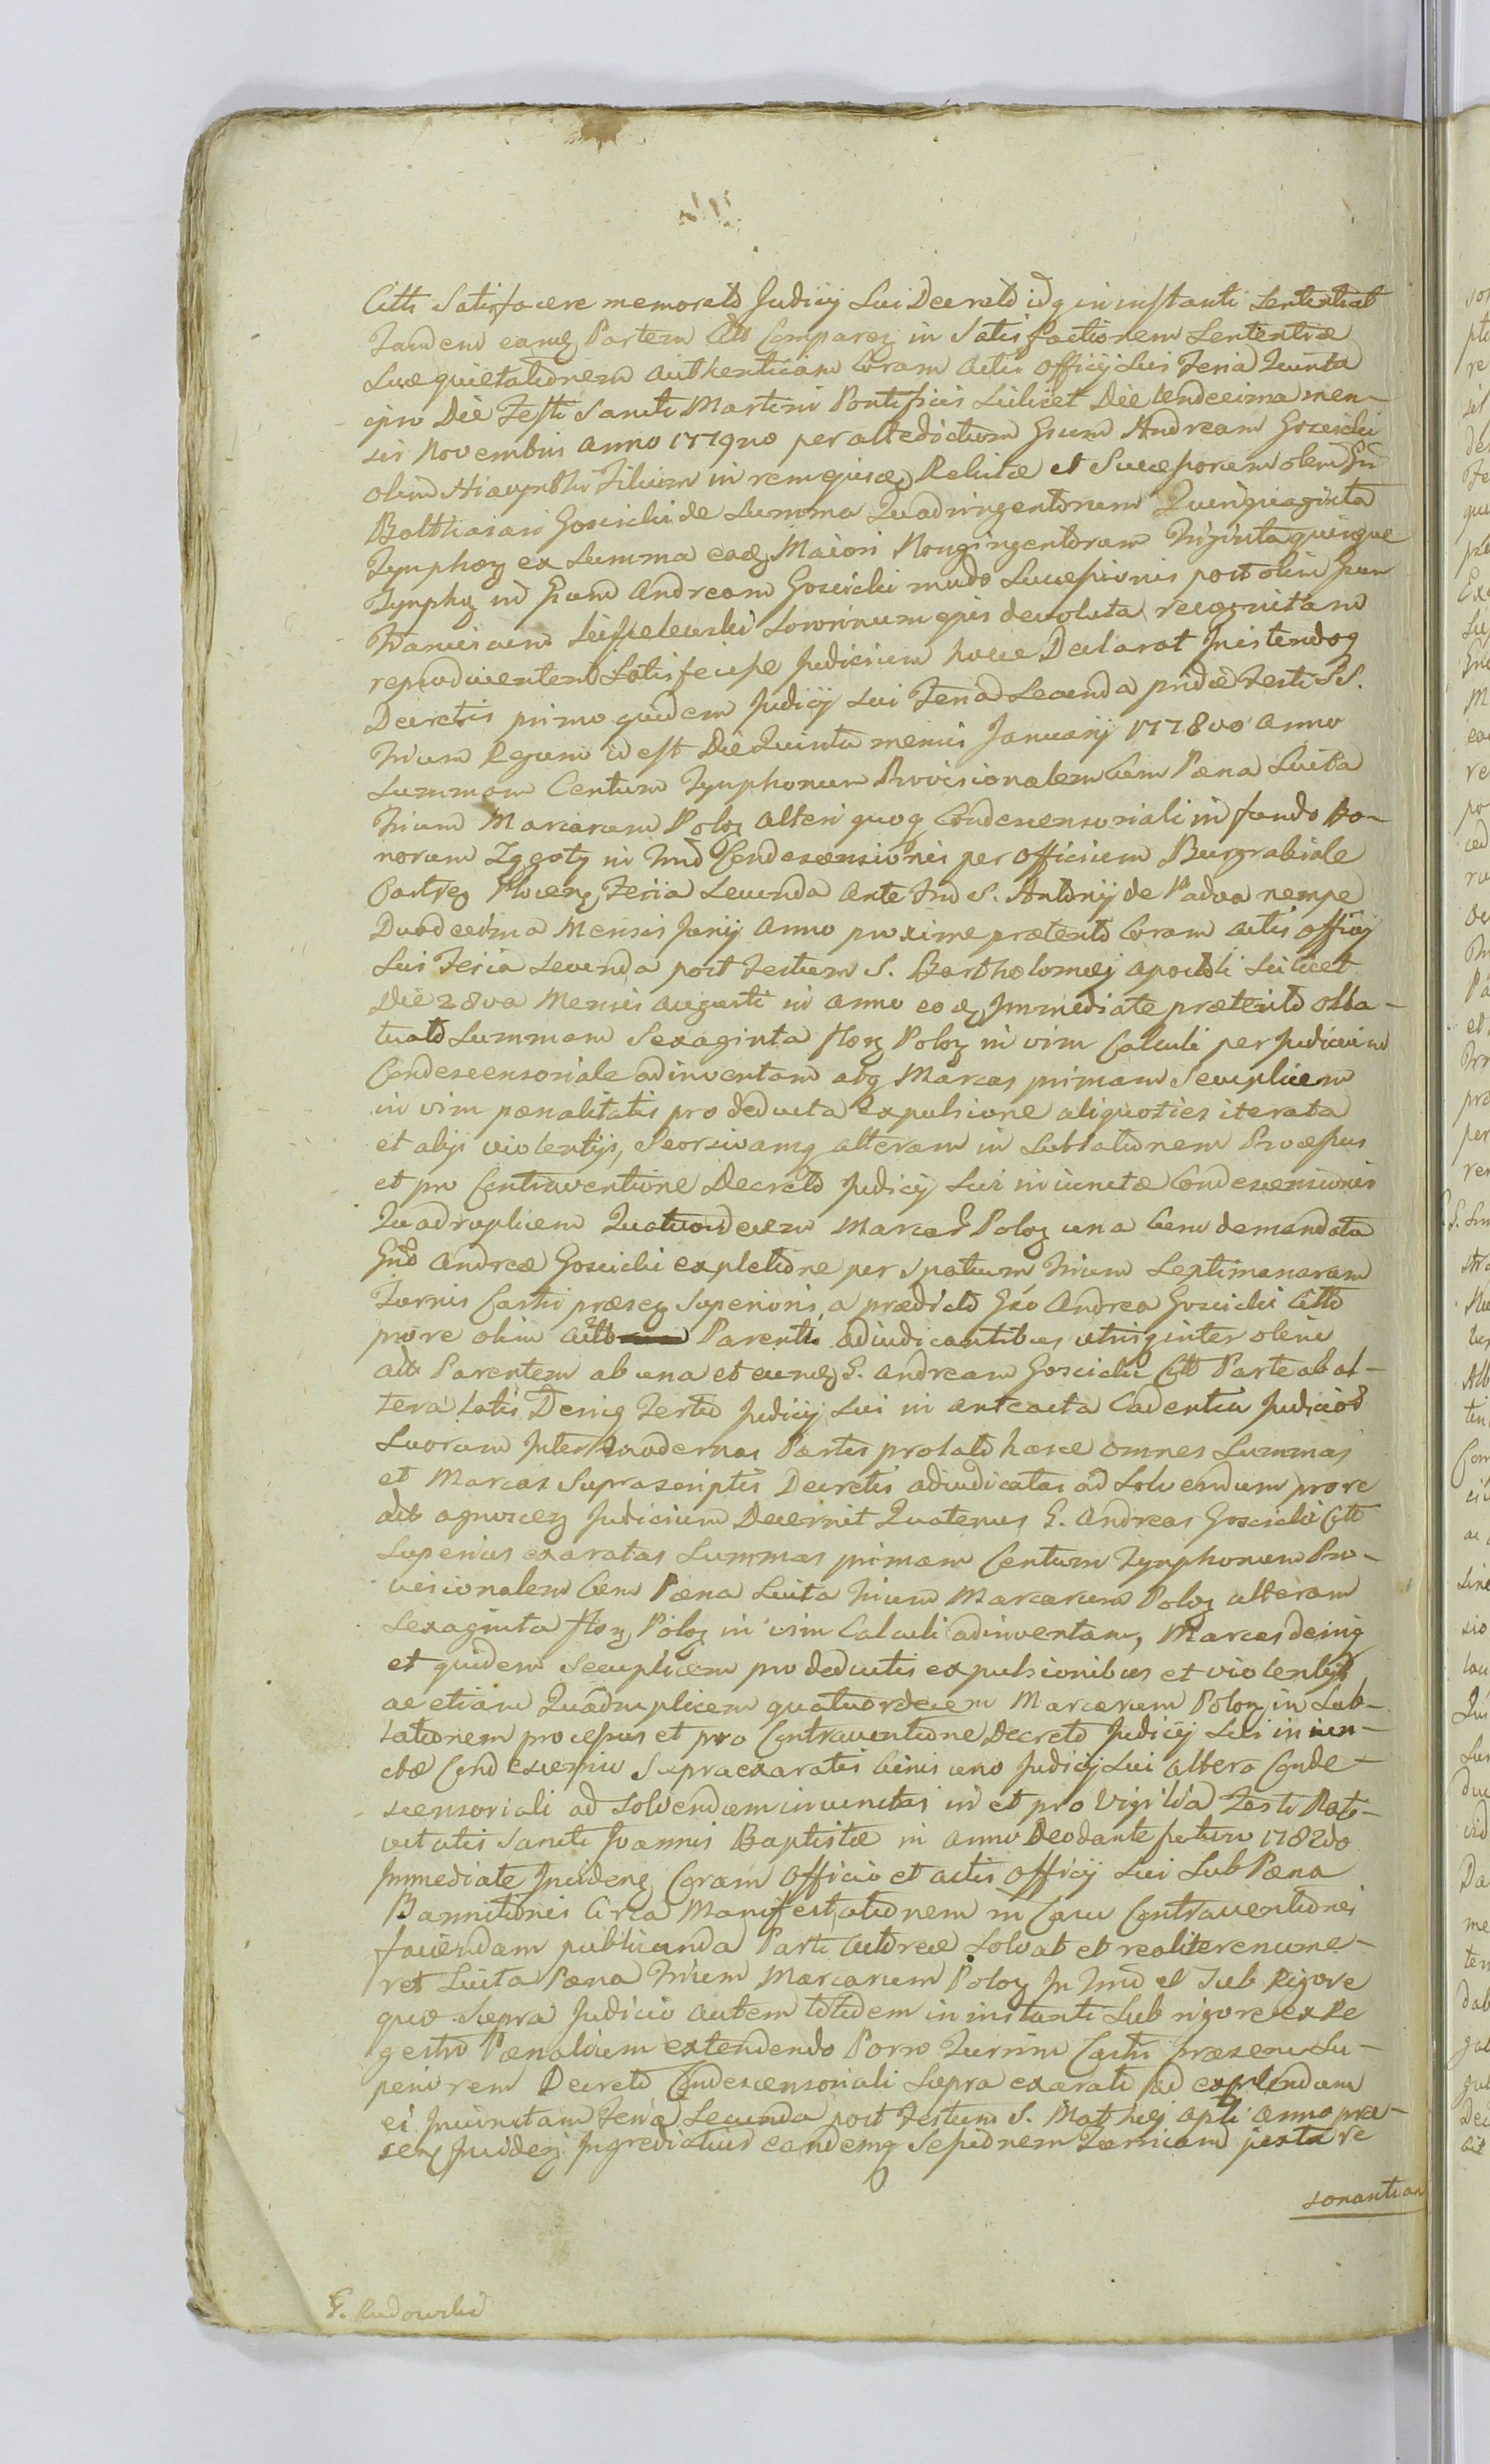 Citti Satisfacere memorato Judicij Sui Decreto idq in instanti Sententiat
Tandem eamq Partem Att Comparez in Satisfactionem Sententiæ
Suæ quietationem authenticam Coram actis Officij Sui Feria Quinta
ipso Die Festi Sancti Martini Pontificis Scilicet Die Undecima men-
sis Novembris anno 1779no per altedictum Gsum Andream Goscicki
olim Hiacynthi Filium in rem ejusq Relictæ et Successorum olim Gsi
Balthasari Goscicki de Summa Quadringentorum Quinquaginta
Tynphoz ex Summa eaq Maiori Nongingentorum Triginta quinque
Tynphoz in Gsum Andream Goscicki modo Successionis post olim Gsum
Franciscum Sororinum ejus devoluta recognitam
reproducentem Satisfecisse Judicium hocce Declarat Insistendoq
Decretis primo quidem Judicij Sui Feria Secunda pridie Festi SS.
Trium Regum id est Die Quinta mensis January 1778vo anno
Summam Centum Tynphonum Provisionalem Cum Pæna Luita
Trium Marcarum Poloz alteri quoq Condescensoriali in fundo Bo-
norum Zggoty in Tmo Condescensionis per Officium Burgrabiale
Castrez Plocenz Feria Secunda ante Fm S. Antonij de Padua nempe
Duodecima Mensis Junij Anno proxime præterito Coram actis Officij
Sui Feria Secunda post Festum S. Bartholomæj Apostoli Scilicet
Die 28va Mensis Augusti in anno eoq Immediate præterito obla-
tuato Summam Sexaginta floz Poloz in vim Calculi per Judicium
Condescensoriale adinventam atq Marcas primam Sexuplicem
in vim pænalitatis pro deducta expulsione aliquoties iterata
et alijs violentijs, Seorsivamq alteram in Sublationem Processus
et pro Contraventione Decreto Judicij Sui iniunctæ Condescensionis
Quadruplicem Quatuordecem Marcar Poloz una Cum demandata
Gso Andreæ Goscicki expletione per Spatium Trium Septimanarum
Turris Castri præsez Superioris, a prædicto Gso Andrea Goscicki Citto
pro re olim Actt Parentis adiudicantibus utrisq inter olim
Actt Parentem ab una et eumq G. Andream Goscicki Citt Parte ab al-
tera latis Deniq Tertio Judicij Sui in anteacta Cadentia Judicior
Suorum Inter modernas Partes prolato hasce omnes Summas
et Marcas Suprascriptis Decretis adiudicatas ad Solvendum pro re
Att agnoscez Judicium Decernit Quatenus G. Andreas Goscicki Citt
Superius exaratas Summas primam Centum Tynphonum Pro-
visionalem Cum Pæna Luita Trium Marcarum Poloz alteram
Sexaginta floz Poloz in vim Calculi adinventam, Marcas deniq
et quidem Sexuplicem pro deductis expulsionibus et violentijs
ac etiam Quadruplicem quatuordecem Marcarum Poloz in Sub-
lationem processus et pro Contraventione Decreto Judicij Sui iniun-
ctæ Condescensio Supraexaratis binis uno Judicij Sui altero Conde-
scensoriali ad Solvendum iniunctas in et pro Vigilia Festi Nati-
vitatis Sancti Joannis Baptistæ in anno Deo dante futuro 1782do
Immediate Incidenz Coram Officio et actis Officij Sui Sub Pæna
Bannitionis Circa Manifestationem in Casu Contraventionis
faciendam publicanda Parti Actoreæ Solvat et realiter enume-
ret Luita Pæna Trium Marcarum Poloz In Tmo et Sub Rigore
quo Supra Judicio autem totidem in instanti Sub rigore ex Re
gestro Pænalium extendendo Porro Turrim Castri præsens Su-
periorem Decreto Condescensoriali Supra exarato ad explendam
ei Iniunctam Feria Secunda post Festum S. Mathæj Apli anno præ-
senz Incidez Ingrediatur eandemq Sessionem Turricam juxta re
sonantiam
G. Rudowski